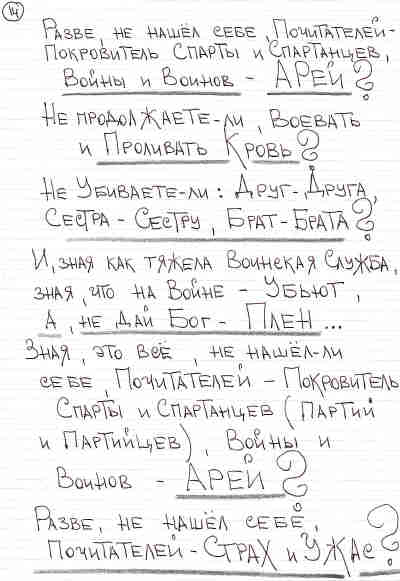 14
Разве, не нашёл себе, Почитателей-
Покровитель Спарты и Спартанцев,
Войны и Воинов - АРЕЙ?
Не продолжаете-ли, Воевать
и Проливать Кровь?
Не Убиваете-ли: Друг-Друга,
Сестра-Сестру, Брат-Брата?
И, зная как тяжела Воинская Служба,
зная, что на Войне - Убьют,
А, не дай Бог - Плен...
Зная, это всё, не нашёл-ли
себе, Почитателей - Покровитель
Спарты и Спартанцев (Партий
и Партийцев), Войны и
Воинов - АРЕЙ?
Разве, не нашёл себе,
Почитателей - Страх и Ужас?